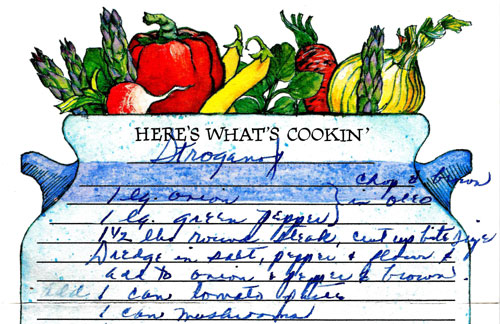 HERE'S WHAT'S COOKIN'
Stroganoff
1 lg. onion } chop & brown
1 lg. green pepper } in oleo
1 1/2 lbs round steak, cut up bite size
Dredge in salt, pepper & flour &
add to onion & pepper & brown
add 1 can tomato
1 can mushrooms